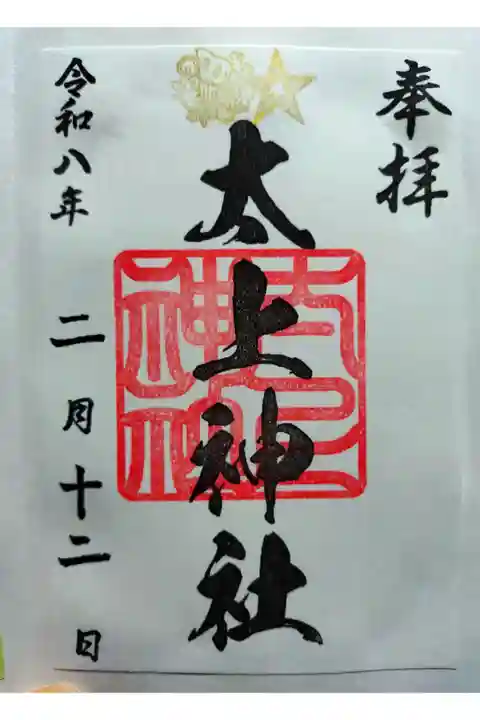 奉拝
太上神社
令和八年 二月十二日